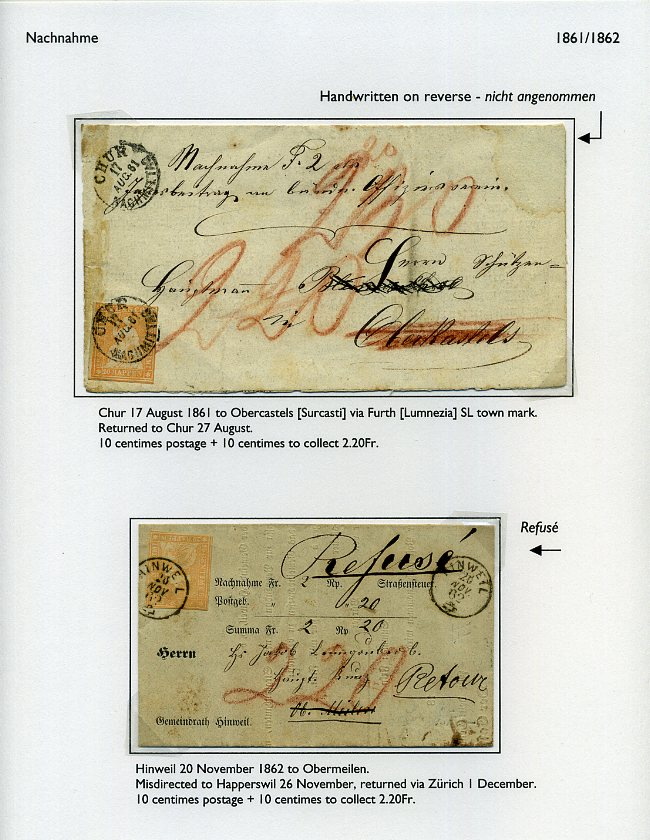 Nachnahme 1861/1862
Handwritten on reverse - nicht angenommen
CHUR
17
AUG. 61
NACHMITTAG
Nachnahme F. 2
20
220
220
Herrn Schützen-
Hauptmann
in Oberkastels
CHUR
17
AUG. 61
NACHMITTAG
RAPPEN
Chur 17 August 1861 to Obercastels [Surcasti] via Furth [Lumnezia] SL town mark.
Returned to Chur 27 August.
10 centimes postage + 10 centimes to collect 2.20Fr.
Refusé
Refusé
HINWEIL
20
NOV
62
HINWEIL
20
NOV
62
Nachnahme Fr. 2 Rp. Straßensteuer
Postgeb. " " 20
Summa Fr. 2 Rp 20
Herrn Hs Jakob
220
Retour
Gemeindrath Hinweil.
Hinweil 20 November 1862 to Obermeilen.
Misdirected to Happerswil 26 November, returned via Zürich 1 December.
10 centimes postage + 10 centimes to collect 2.20Fr.